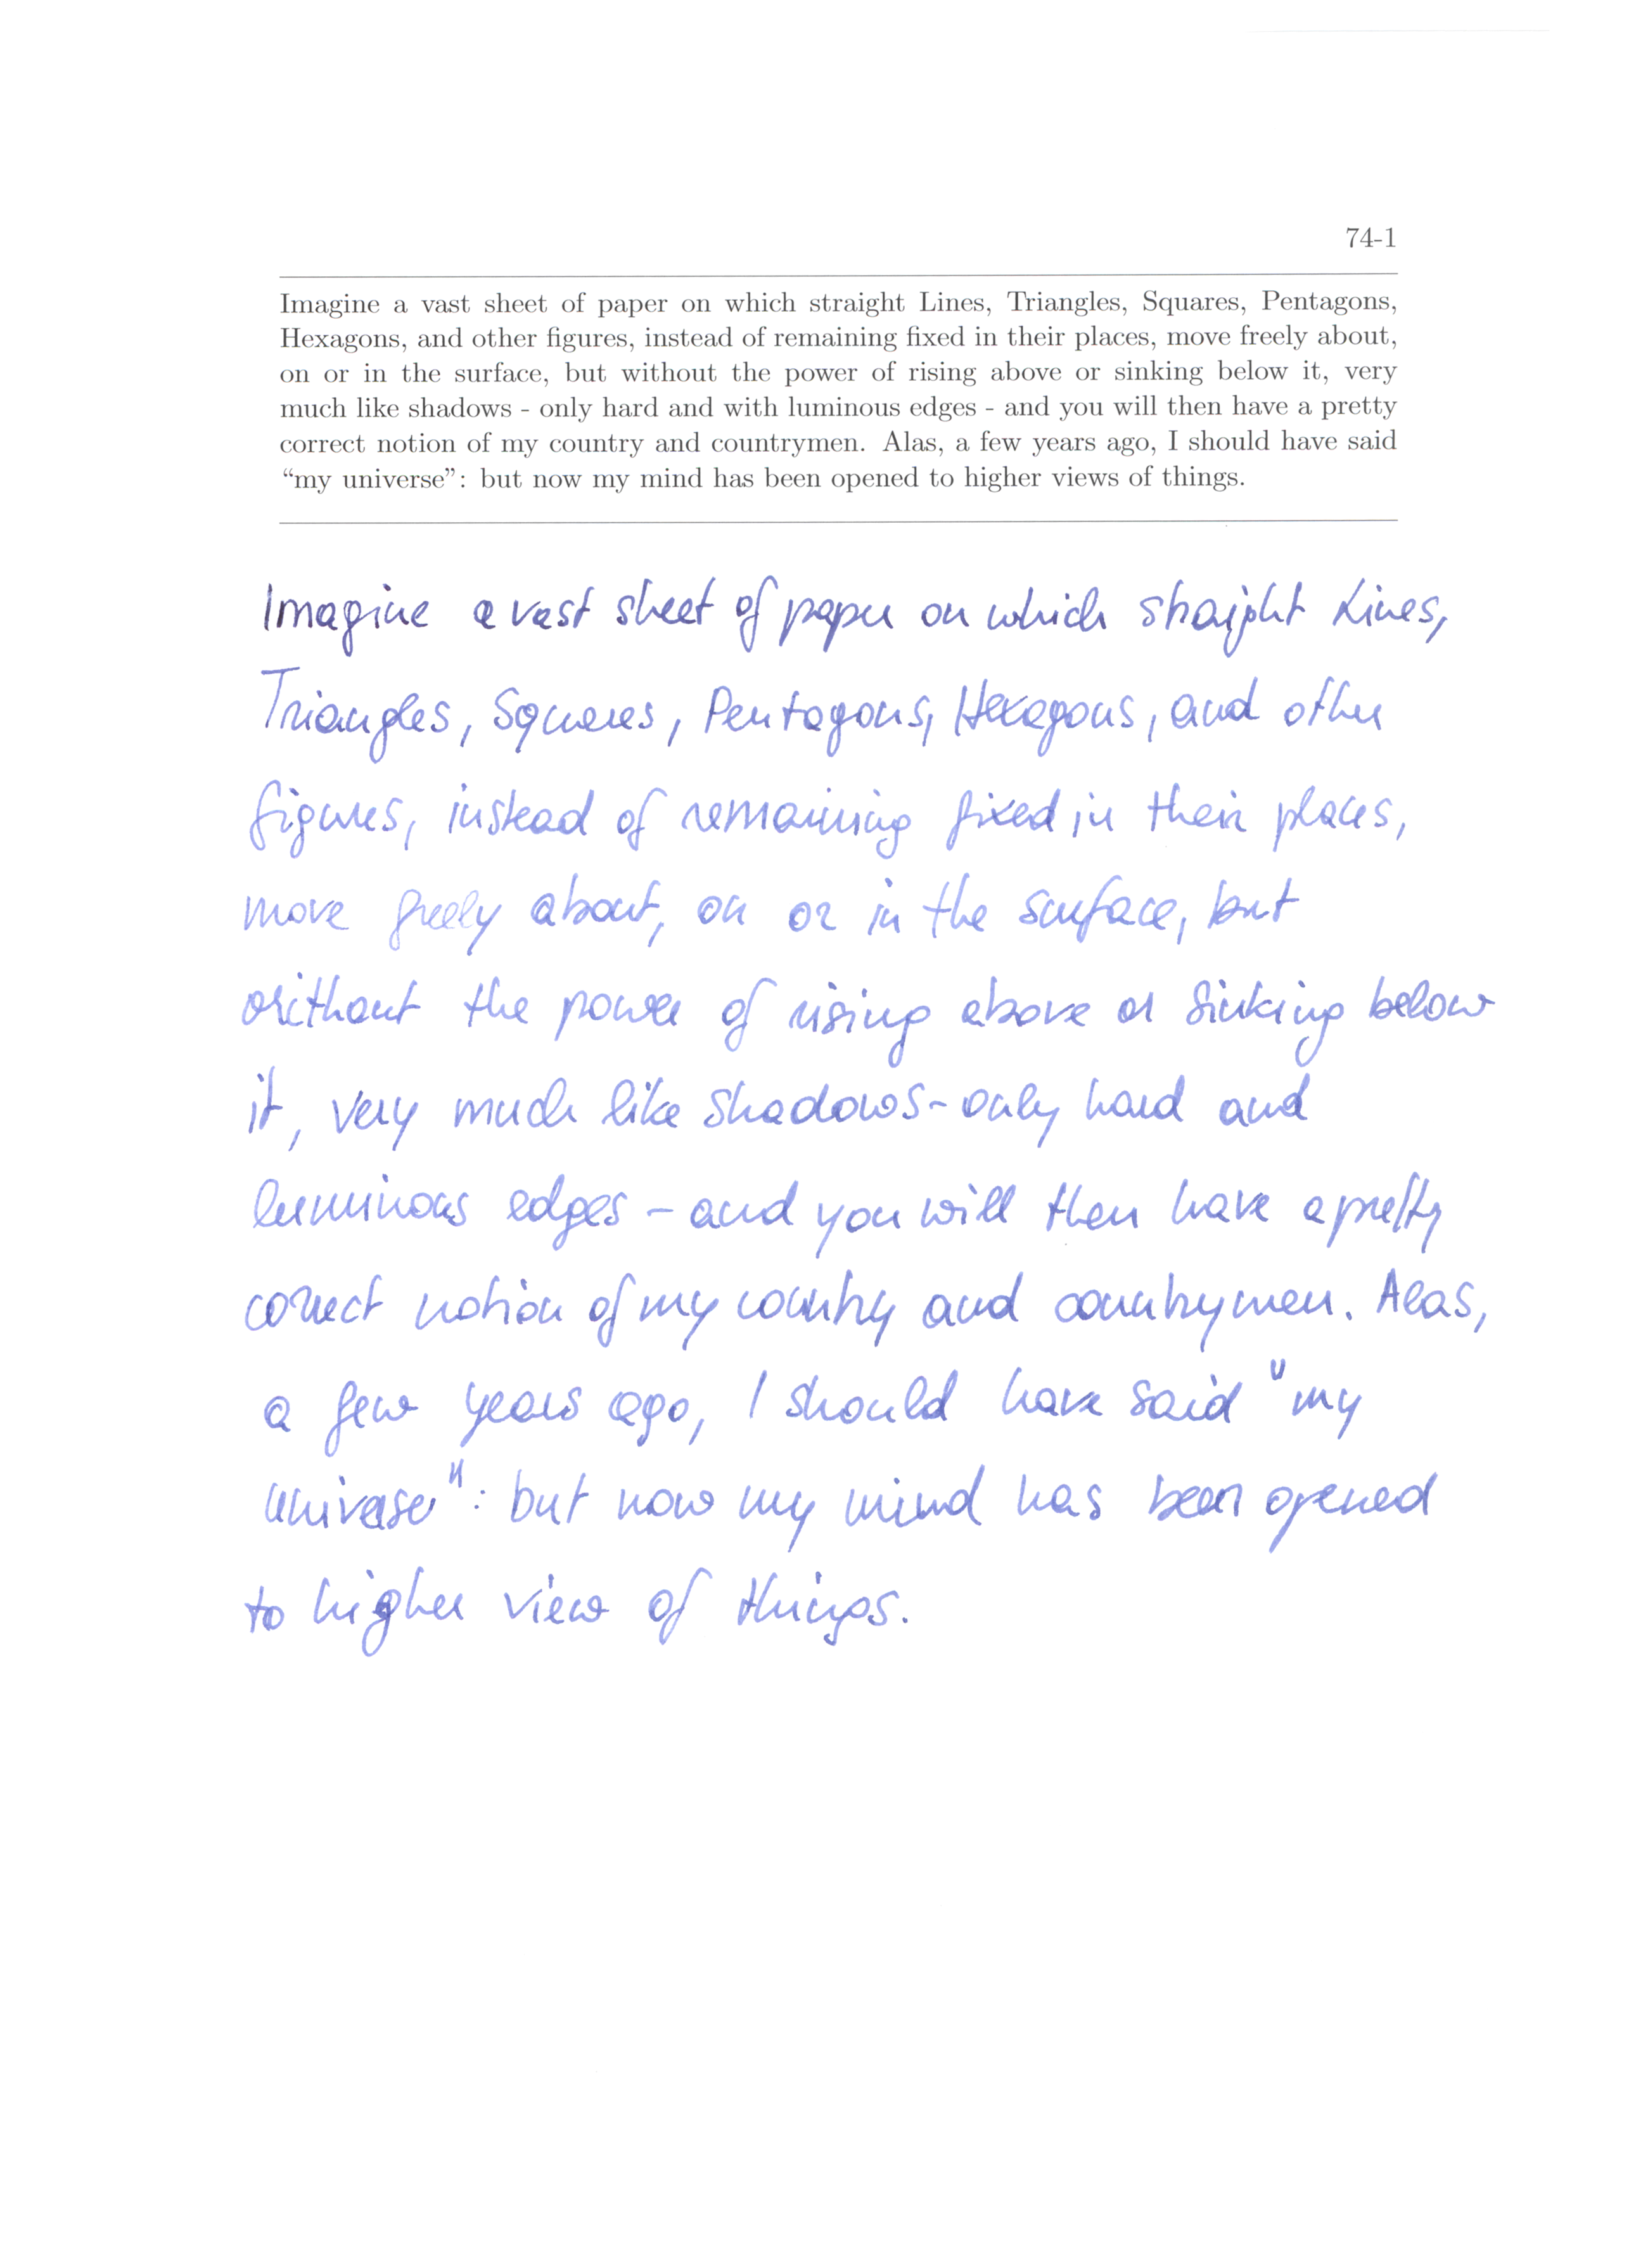 74-1
Imagine a vast sheet of paper on which straight Lines, Triangles, Squares, Pentagons,
Hexagons, and other figures, instead of remaining fixed in their places, move freely about,
on or in the surface, but without the power of rising above or sinking below it, very
much like shadows - only hard and with luminous edges - and you will then have a pretty
correct notion of my country and countrymen. Alas, a few years ago, I should have said
“my universe”: but now my mind has been opened to higher views of things.
Imagine a vast sheet of paper on which straight Lines,
Triangles, Squares, Pentagons, Hexagons, and other
figures, instead of remaining fixed in their places,
move freely about, on or in the surface, but
without the power of rising above or sinking below
it, very much like shadows - only hard and
luminous edges - and you will then have a pretty
correct notion of my country and countrymen. Alas,
a few years ago, I should have said "my
universe": but now my mind has been opened
to higher view of things.